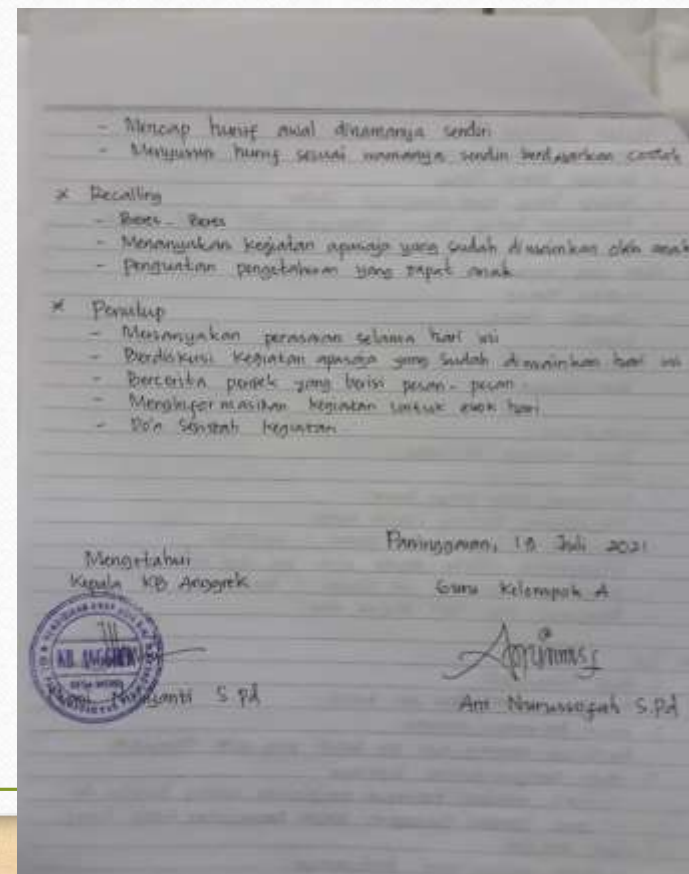 - Mencap huruf awal dinamanya sendiri
- Menyusun huruf sesuai namanya sendiri berdasarkan contoh
* Recalling
- Beres - Beres
- Menanyakan kegiatan apasaja yang sudah dimainkan oleh anak
- Penguatan pengetahuan yang dapat anak
* Penutup
- Menanyakan perasaan selama hari ini
- Berdiskusi kegiatan apasaja yang sudah dimainkan hari ini
- Bercerita pendek yang berisi pesan - pesan
- Menginformasikan kegiatan untuk esok hari
- Do'a Setelah kegiatan
Paninggaran, 18 Juli 2021
Mengetahui
Kepala KB Anggrek
Guru Kelompok A
KB. ANGGREK
S.Pd
Ani Nurussofah S.Pd